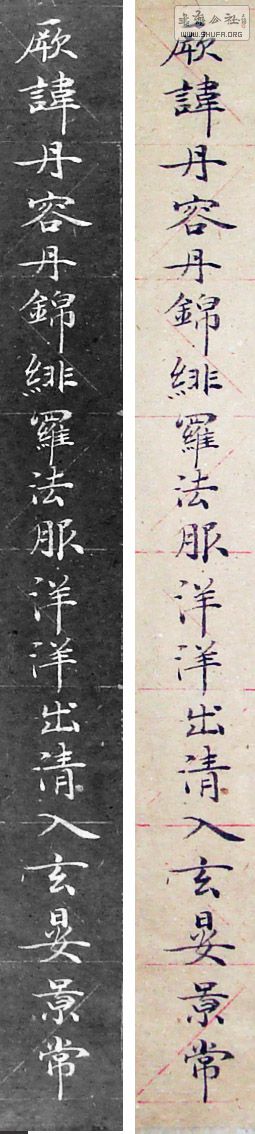 厥諱丹容丹錦緋羅法服洋洋出清入玄晏景常
厥諱丹容丹錦緋羅法服洋洋出清入玄晏景常
公社
WWW.SHUFA.ORG